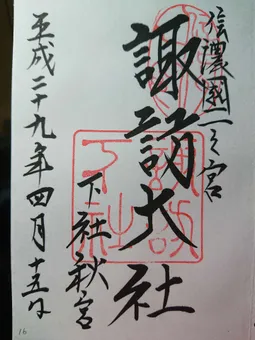 信濃國一之宮
諏訪大社
下社秋宮
平成二十九年四月十五日
16